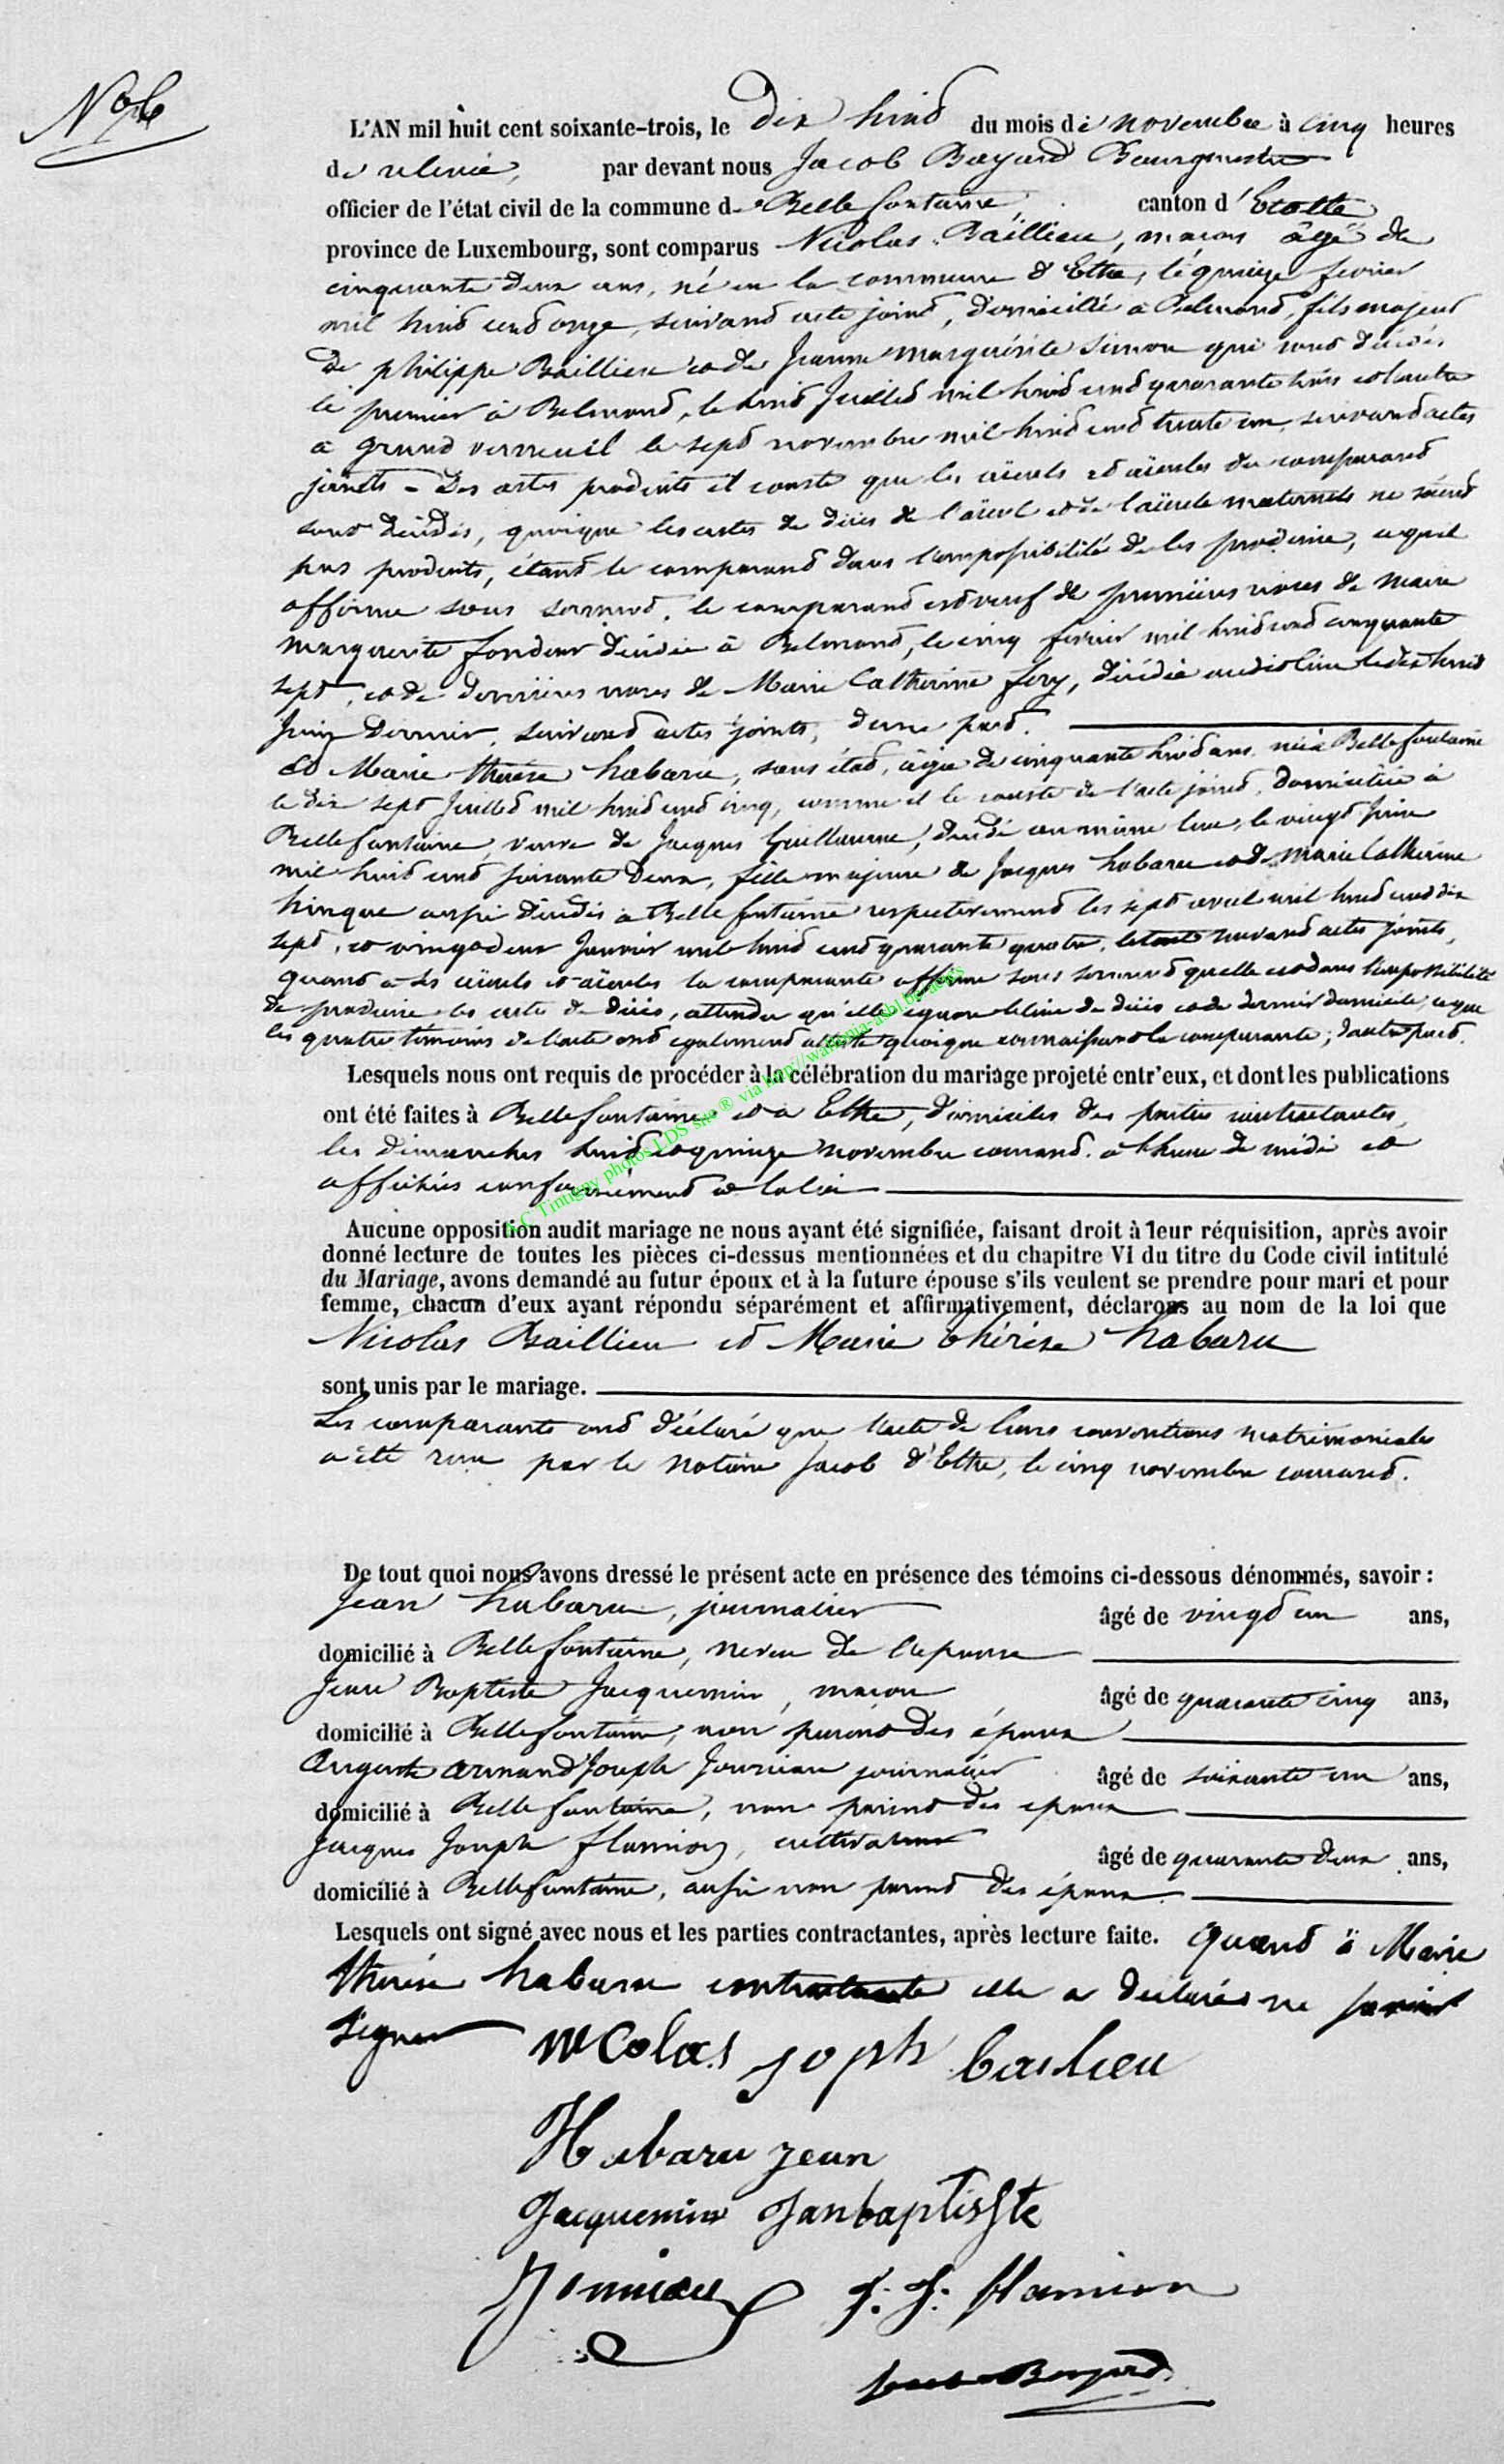 N° 6
L'AN mil huit cent soixante-trois, le dix huit du mois de novembre à cinq heures
de relevée, par devant nous Jacob Bayard Bourgmestre
officier de l'état civil de la commune de Bellefontaine, canton d'Etalle
province de Luxembourg, sont comparus Nicolas Baillieu, maçon âgé de
cinquante deux ans, né en la commune d'Ethe, le quinze fevrier
mil huit cent onze, suivant acte joint, domicilié à Belmont, fils majeur
de philippe Baillieu et de Jeanne marguérite Simon qui sont décédés
le premier à Belmont, le huit Juillet mil huit cent quarante trois et l'autre
à grand verneuil le sept novembre mil huit cent trente un, suivant actes
joints - Des actes produits il conste que les aïeuls et aïeules du comparant
sont décédés, quoique les actes de décès de l'aïeul et de l'aïeule maternels ne soient
pas produits, étant le comparant dans l'impossibilité de les produire, ce qu'il
affirme sous serment. le comparant est veuf de premières noces de Marie
marguerite fondeur décédée à Belmont, le cinq fevrier mil huit cent cinquante
sept, et de dernières noces de Marie Catherine fery, décédée audit lieu le dix huit
Juin dernier, suivant actes joints, d'une part.
Et Marie thérèse habaru, sans état, âgée de cinquante huit ans, née à Bellefontaine
le dix sept Juillet mil huit cent cinq, comme il le conste de l'acte joint, domiciliée à
Bellefontaine, veuve de Jacques Guillaume, décédé au même lieu, le vingt Juin
mil huit cent soixante deux, fille majeure de Jacques habaru et de Marie Catherine
hinque aussi décédés à Bellefontaine respectivement les sept avril mil huit cent dix
sept, et vingt deux Janvier mil huit cent quarante quatre, le tout suivant actes joints,
quant à ses aïeuls et aïeules la comparante affirme sous serment qu'elle est dans l'impossibilité
de produire les actes de décès, attendu qu'elle ignore le lieu de décès et de dernier domicile, ce que
les quatre témoins de l'acte ont également attesté quoique connaissant la comparante; d'autre part.
Lesquels nous ont requis de procéder à la célébration du mariage projeté entr'eux, et dont les publications
ont été faites à Bellefontaine et à Ethe, domiciles des parties contractantes,
les dimanches huit et quinze novembre courant à l'heure de midi et
affichées conformément à la loi
Aucune opposition audit mariage ne nous ayant été signifiée, faisant droit à leur réquisition, après avoir
donné lecture de toutes les pièces ci-dessus mentionnées et du chapitre VI du titre du Code civil intitulé
du Mariage, avons demandé au futur époux et à la future épouse s'ils veulent se prendre pour mari et pour
femme, chacun d'eux ayant répondu séparément et affirmativement, déclarons au nom de la loi que
Nicolas Baillieu et Marie thérèse habaru
sont unis par le mariage.
Les comparants ont déclaré que l'acte de leurs conventions matrimoniales
a été reçu par le notaire Jacob d'Ethe, le cinq novembre courant.
De tout quoi nous avons dressé le présent acte en présence des témoins ci-dessous dénommés, savoir :
Jean habaru, journalier âgé de vingt un ans,
domicilié à Bellefontaine, neveu de l'épouse
Jean Baptiste Jacquemin, maçon âgé de quarante cinq ans,
domicilié à Bellefontaine, non parent des époux
Auguste armand Joseph journalier âgé de soixante un ans,
domicilié à Bellefontaine, non parent des époux
Jacques Joseph flamion, cultivateur âgé de quarante deux ans,
domicilié à Bellefontaine, aussi non parent des époux
Lesquels ont signé avec nous et les parties contractantes, après lecture faite. Quant à Marie
thérèse habaru contractante elle a déclarée ne savoir
signer
Nicolas joph bailieu
Habaru jean
Jacquemin Janbaptisste
J. J. flamion
Jacob Bayard
A.C Tintigny photos LDS site ® via http://wallonia-asbl.be/actes